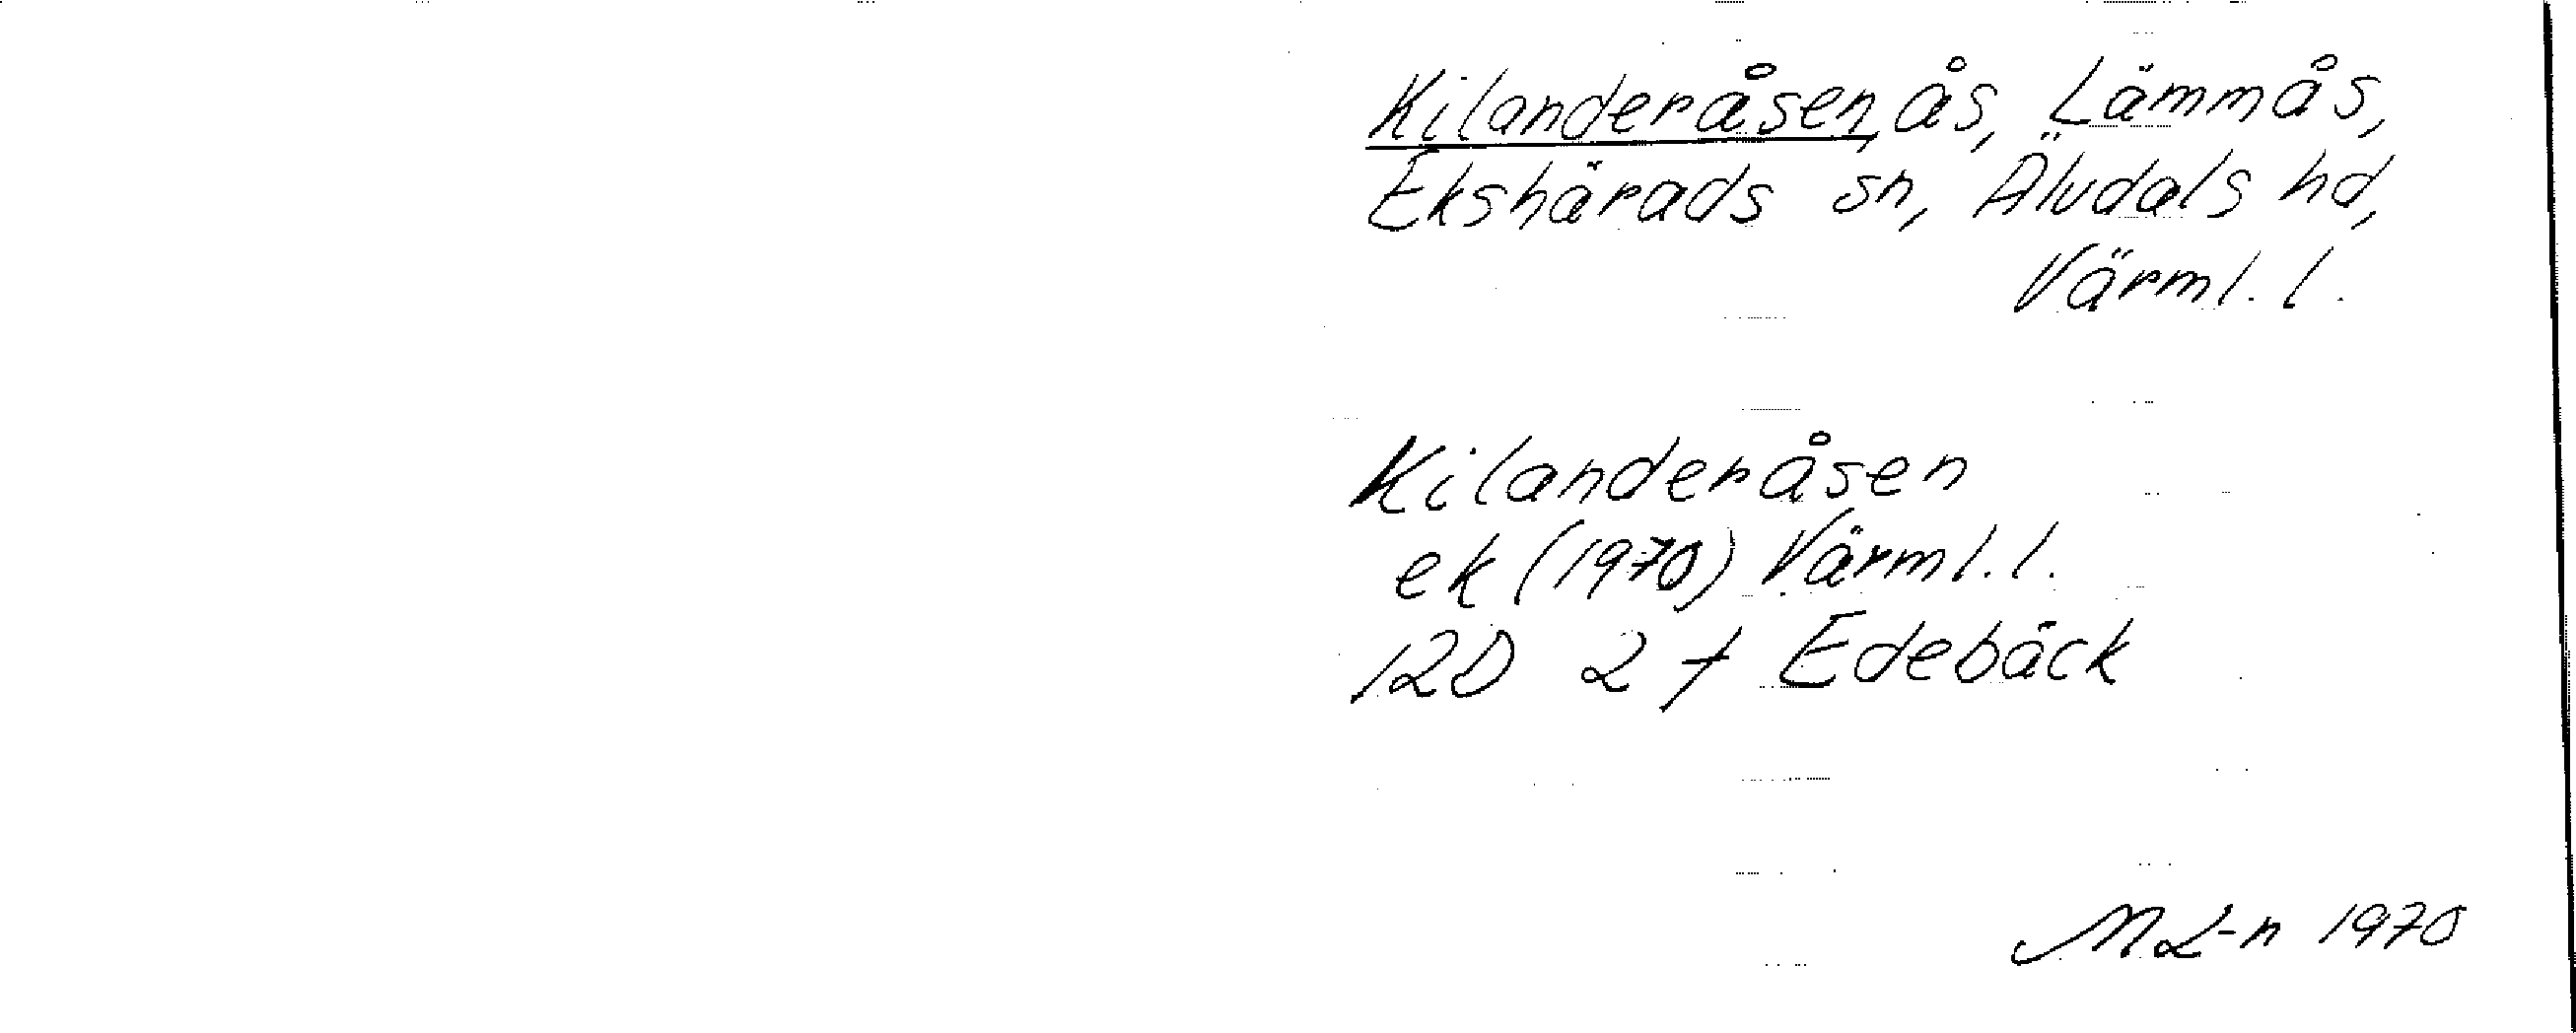 Kilanderåsen, ås, Lämmås,
Ekshärads sn, Älvdals hd,
Värml. l.
Kilanderåsen
ek (1970) Värml. l.
12D 2 f Edebäck
M L-n 1970